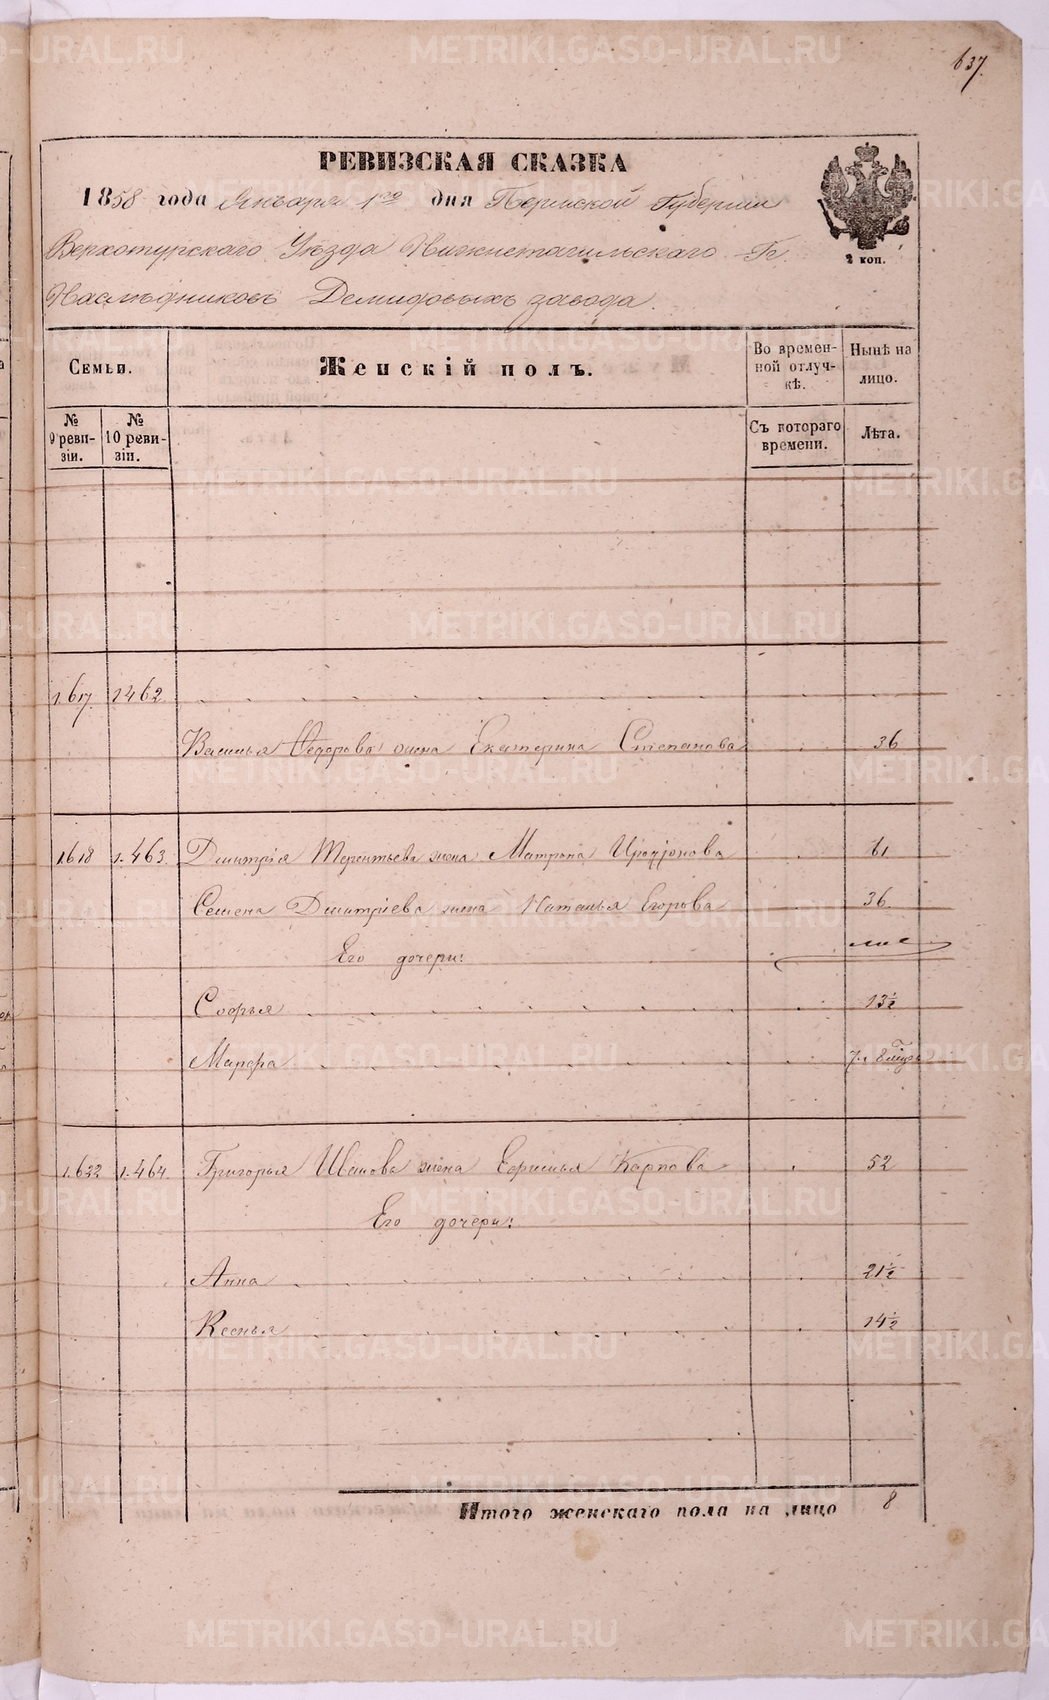 637.
РЕВИЗСКАЯ СКАЗКА
1858 года Января 1го дня Пермской Губернии
Верхотурскаго Уѣзда Нижнетагильскаго Гг.
Наслѣдниковъ Демидовыхъ завода.
2 коп.
Семьи. Женскій полъ. Во временной отлучкѣ. Нынѣ на лицо.
№ 9 ревизіи. № 10 ревизіи. Съ котораго времени. Лѣта.
1.617. 1462.
Василья Федорова жена Екатерина Степанова 36
1.618 1.463. Дмитрія Терентьева жена Матрона 61
Семена Дмитріева жена Наталья Егорова 36
Его дочери:
Софья 13½
Марфа 7. 8
1.622 1.464. Григорья Иванова жена Ефимья Карпова 52
Его дочери:
Анна 21½
Ксенья 14½
Итого женскаго пола на лицо 8
METRIKI.GASO-URAL.RU